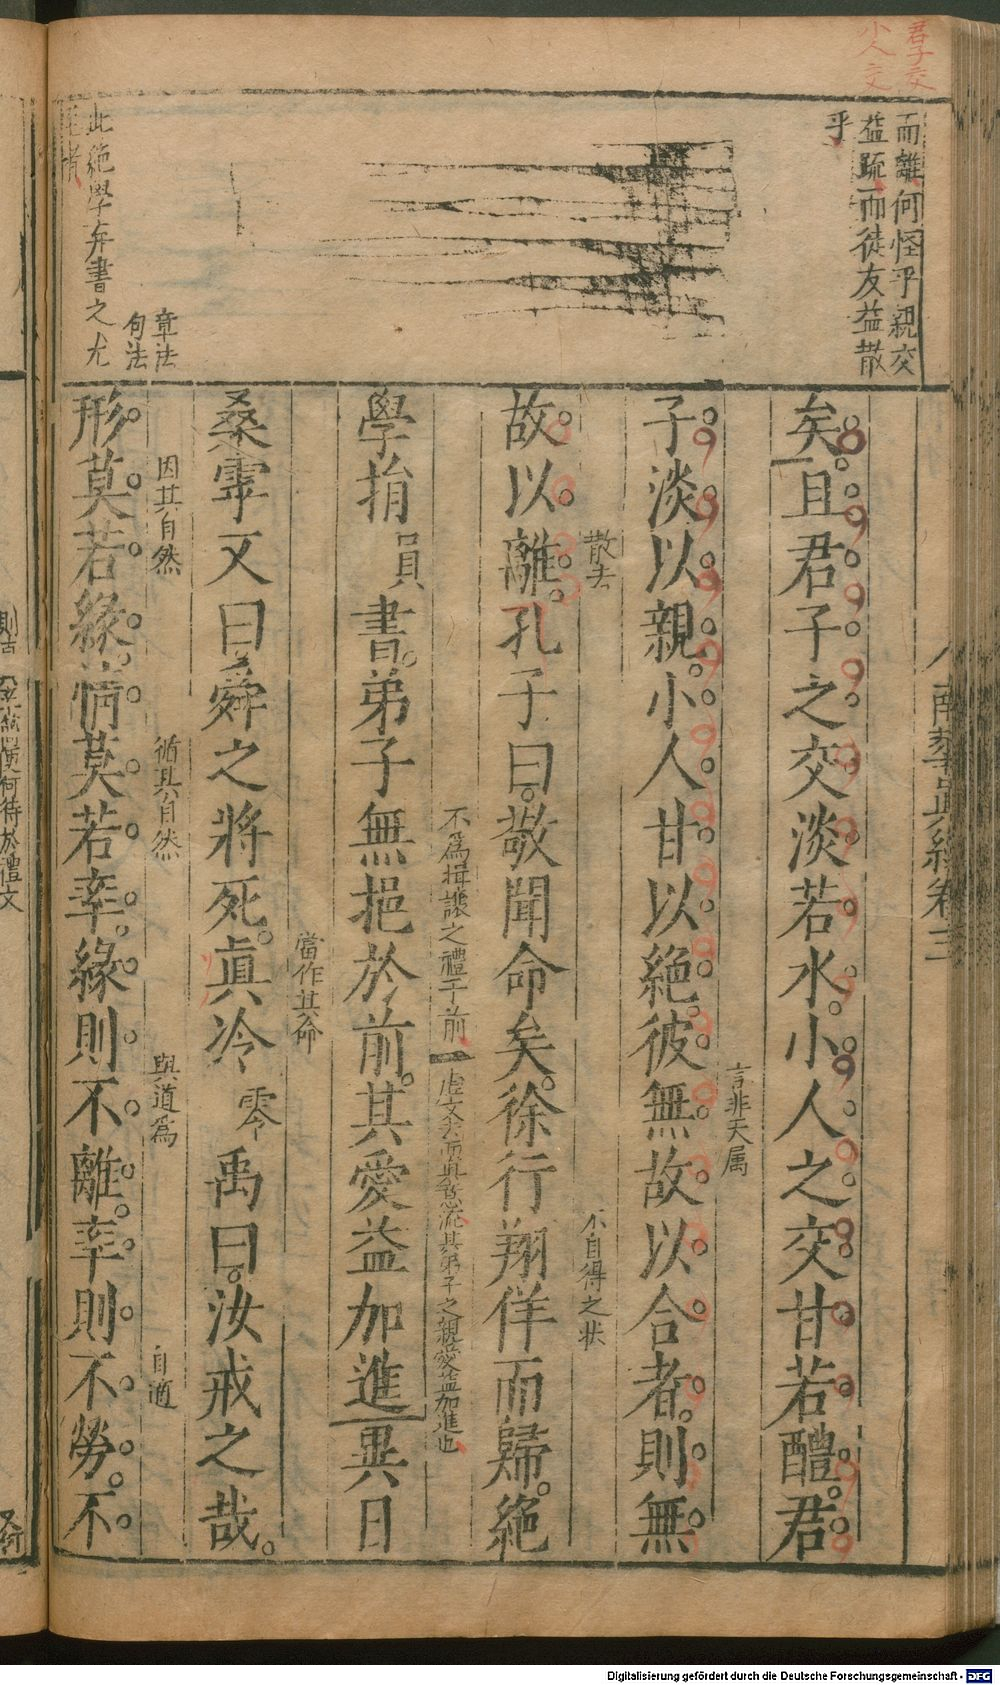 君子交
小人交
而離何怪乎親交
益疏而徒友益散
乎
章法
句法
此絶學弃書之尤
南華眞經卷三
矣且君子之交淡若水小人之交甘若醴君
言非天属
子淡以親小人甘以絶彼無故以合者則無
散去
不自得之状
故以離孔子曰敬聞命矣徐行翔佯而歸絶
不爲揖讓之禮于前
其弟子之親愛益加進也
學捐 員 書弟子無挹於前其愛益加進異日
當作其命
桑雽又曰舜之將死真冷 零 禹曰汝戒之哉
因其自然
循其自然
與道爲
自適
形莫若緣情莫若率緣則不離率則不勞不
何待於禮文
Digitalisierung gefördert durch die Deutsche Forschungsgemeinschaft - DFG